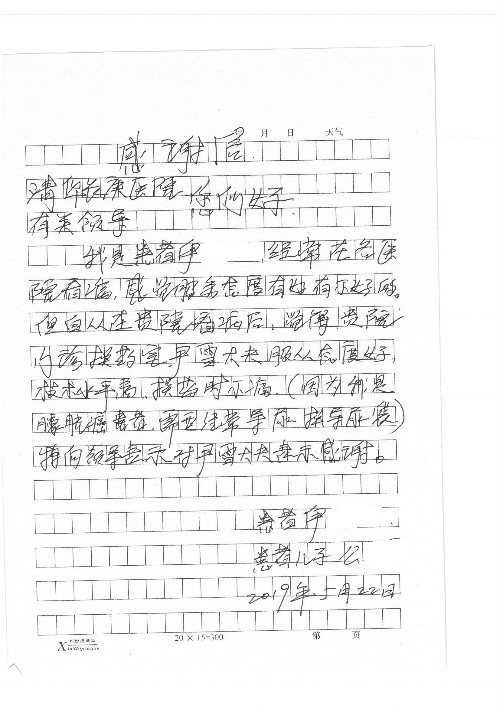 月 日 天气
感谢信
医院 您们好
有关领导
我是患者伊 经常在各医
院看病，感觉服务态度有好有不好的。
但自从在贵院看病后，觉得贵院
门诊换药室尹雪大夫服从态度好，
技术水平高，换药时不痛，（因为我是
膀胱癌患者 需要经常导尿 换导尿袋）
特向领导表示对尹雪大夫表示感谢。
患者伊
患者儿子公
2019年5月22日
20×15=300 第 页